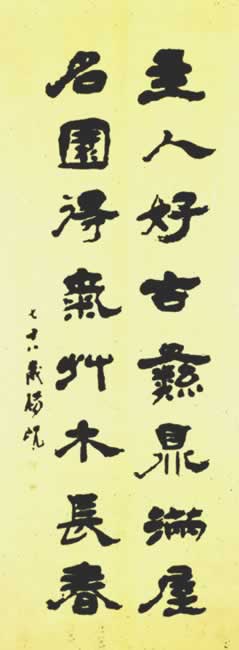 主人好古彝鼎滿屋
名園得氣艸木長春
七十八歲楊峴